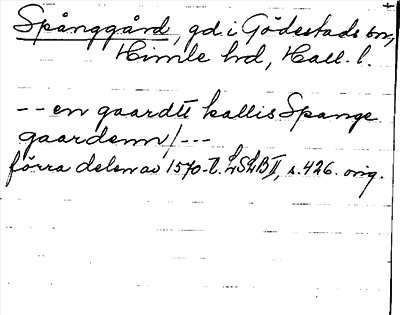 Spånggård, gd. i Gödestads sn,
Himle hd, Hall. l.
-- en gaardtt kallis Spange
gaardenn/---
förra delen av 1570-t. LSLB II, s. 426. orig.